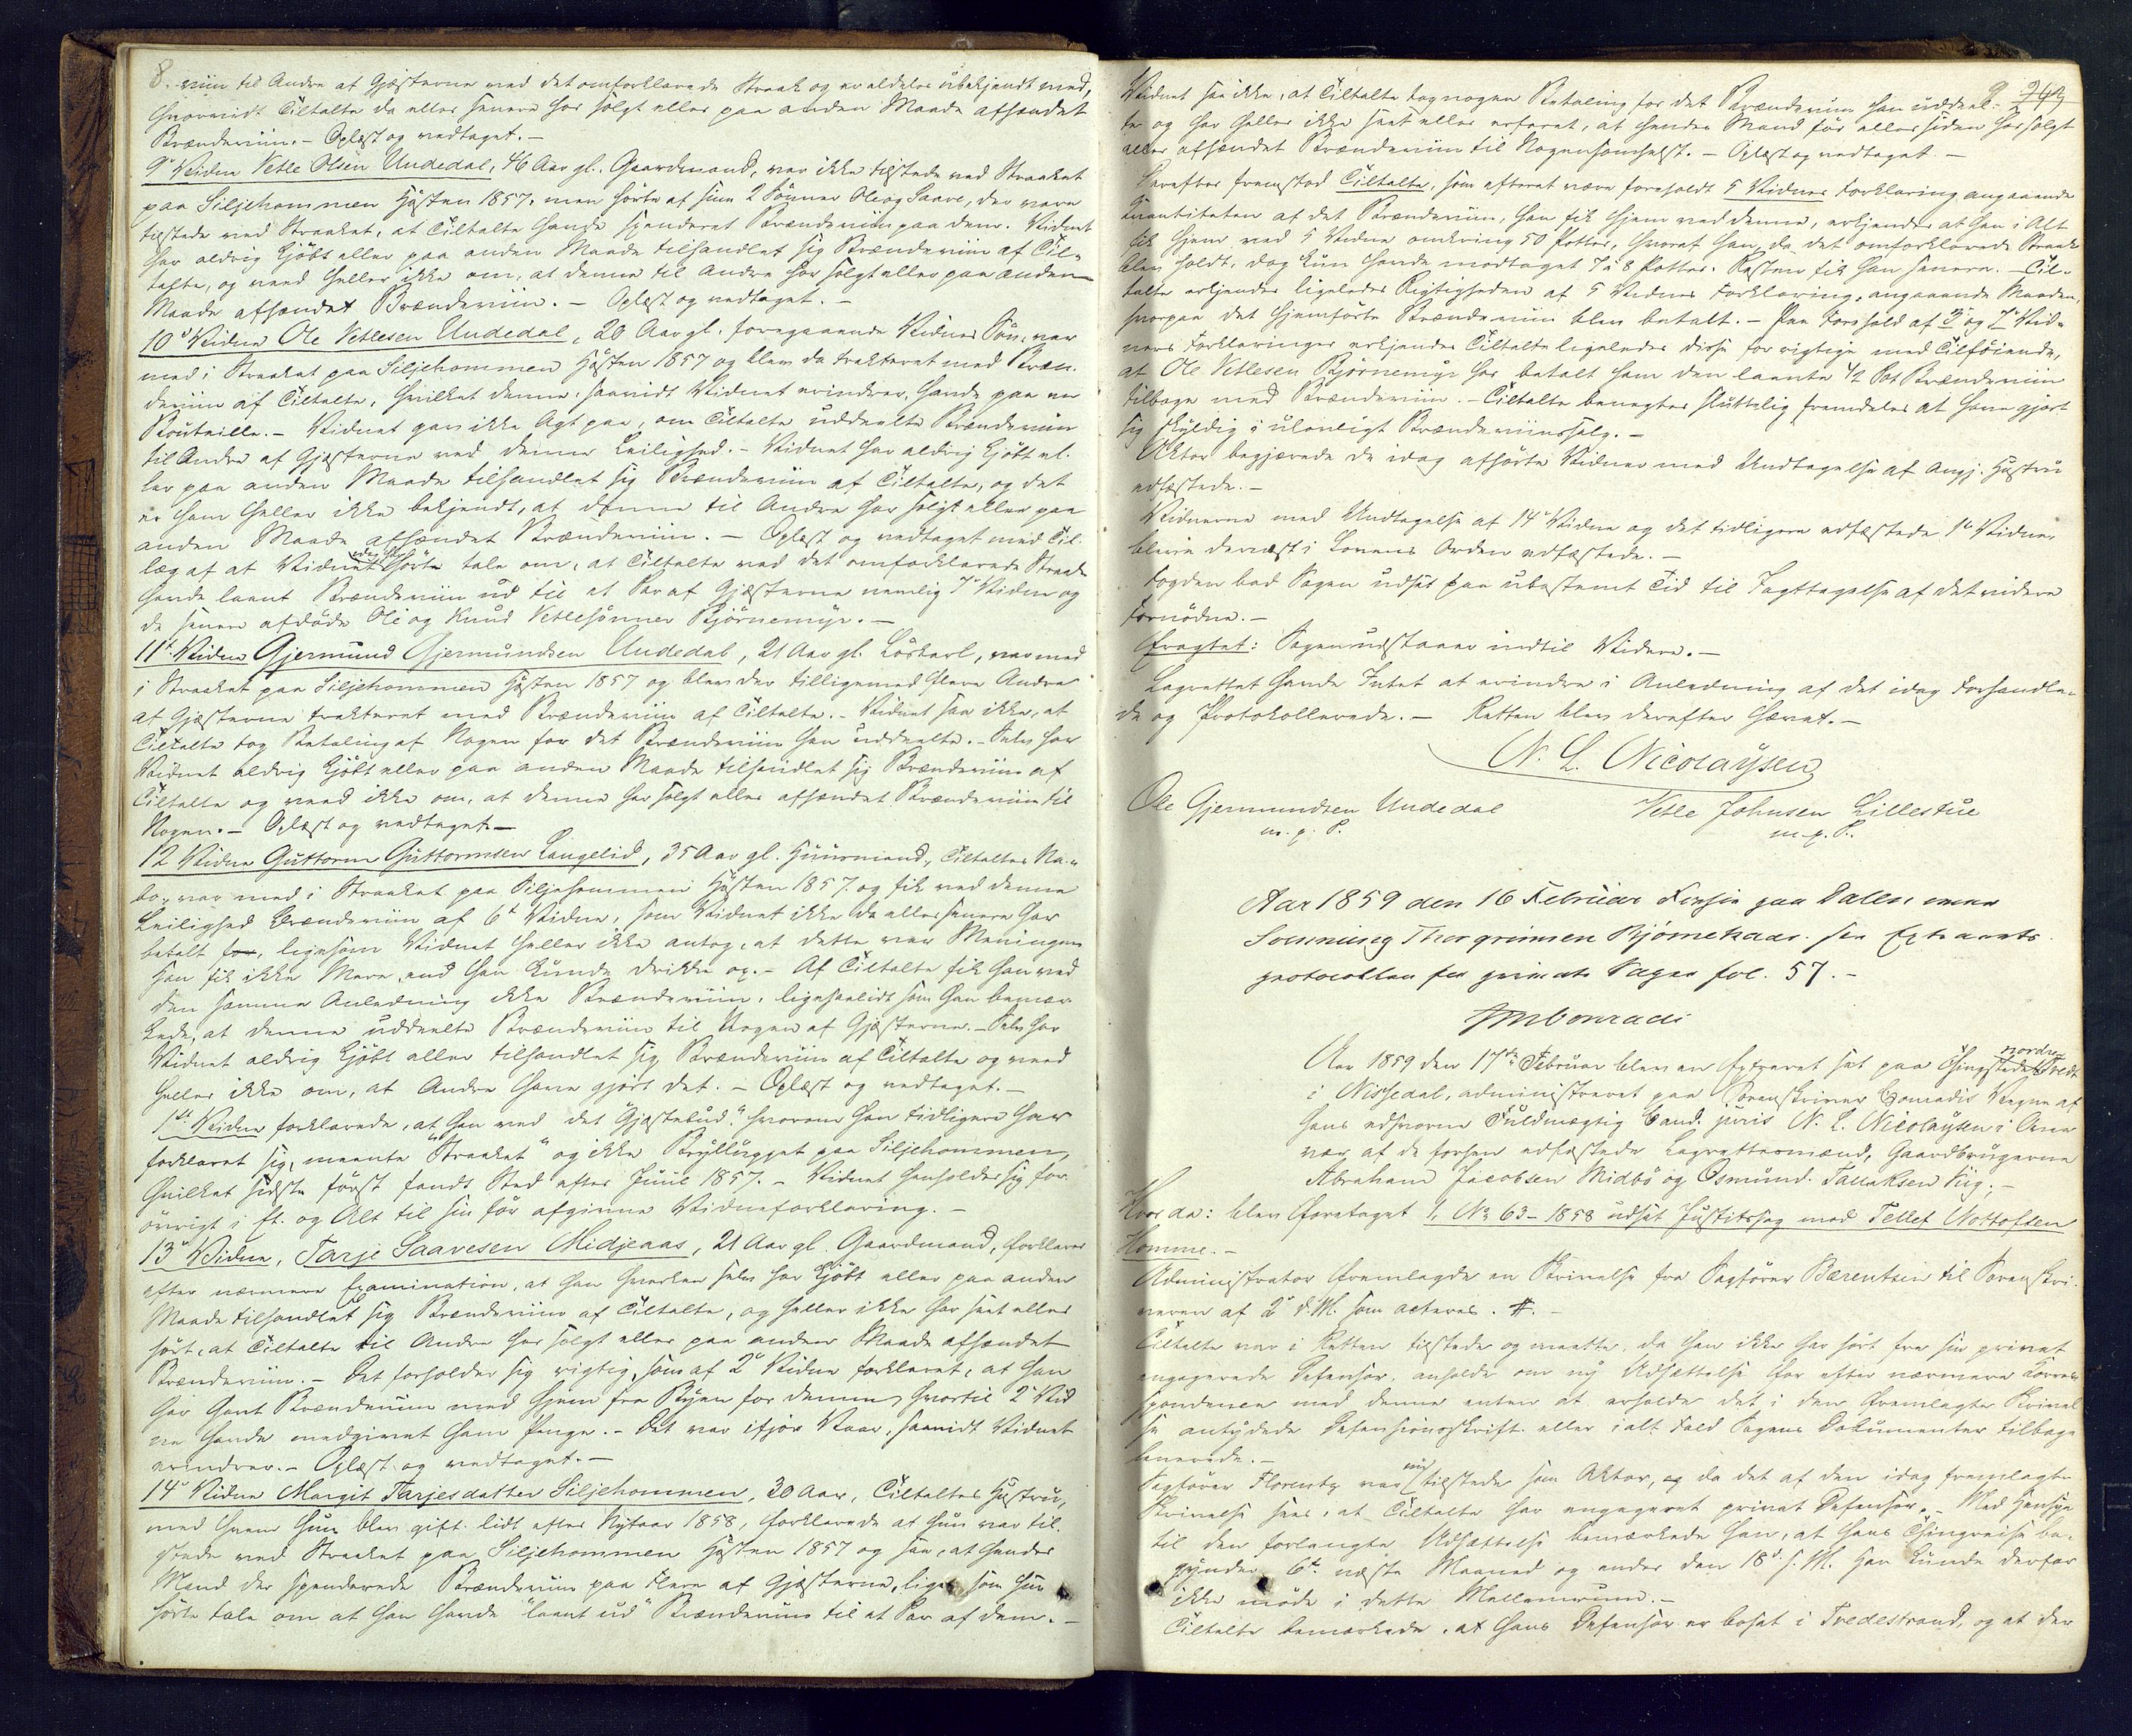 8.
viin til Andre af Gjæsterne ved det omforklarede Straak og er aldeles ubekjendt med,
hvorvidt Tiltalte da eller senere har solgt eller paa anden Maade afhændet
Brændeviin. – Oplæst og vedtaget. –
9de Vidne Vetle Olsen Undedal, 46 Aar gl. Gaardmand, var ikke tilstede ved Straaket
paa Siljehommen Høsten 1857, men hørte af sine 2 Sønner Ole og Saave, der vare
tilstede ved Straaket, at Tiltalte havde spenderet Brændeviin paa dem. Vidnet
har aldrig kjøbt eller paa anden Maade tilhandlet sig Brændeviin af Til-
talte, og veed heller ikke om, at denne til Andre har solgt eller paa anden
Maade afhændet Brændeviin. – Oplæst og vedtaget. –
10de Vidne Ole Vetlesen Undedal, 20 Aar gl. foregaaende Vidnes Søn, var
med i Straaket paa Siljehommen Høsten 1857 og blev da trakteret med Bræn-
deviin af Tiltalte, hvilket denne, saavidt Vidnet erindrer, havde paa en
Bouteille. – Vidnet gav ikke Agt paa, om Tiltalte uddeelte Brændeviin
til Andre af Gjæsterne ved denne Leilighed. – Vidnet har aldrig kjøbt el-
ler paa anden Maade tilhandlet sig Brændeviin af Tiltalte, og det
er ham heller ikke bekjendt, at denne til Andre har solgt eller paa
anden Maade afhændet Brændeviin. – Oplæst og vedtaget med Til-
læg af at Vidnet idag har hørte tale om, at Tiltalte ved det omforklarede Straak
havde laant Brændeviin ud til et Par af Gjæsterne nemlig 7de Vidne og
de senere afdøde Ole og Knud Vetlesønner Bjørnemyr. –
11te Vidne Gjermund Gjermundsen Undedal, 21 Aar gl. Løskarl, var med
i Straaket paa Siljehommen Høsten 1857 og blev der tilligemed flere Andre
af Gjæsterne trakteret med Brændeviin af Tiltalte. – Vidnet saa ikke, at
Tiltalte tog Betaling af Nogen for det Brændeviin han uddeelte. – Selv har
Vidnet aldrig kjøbt eller paa anden Maade tilhandlet sig Brændeviin af
Tiltalte og veed ikke om, at denne har solgt eller afhændet Brændeviin til
Nogen. – Oplæst og vedtaget. –
12 Vidne Guttorm Guttormsen Langelid, 35 Aar gl. Huusmand, Tiltaltes Na-
bo, var med i Straaket paa Siljehommen Høsten 1857 og fik ved denne
Leilighed Brændeviin af 6te Vidne, som Vidnet ikke da eller senere har
betalt for, ligesom Vidnet heller ikke antog, at dette var Meningen
Han fik ikke Mere, end han kunde drikke op. – Af Tiltalte fik han ved
den samme Anledning ikke Brændeviin, ligesaalidt som han bemær-
kede, at denne uddeelte Brændeviin til Nogen af Gjæsterne. – Selv har
Vidnet aldrig kjøbt eller tilhandlet sig Brændeviin af Tiltalte og veed
heller ikke om, at Andre have gjort det. – Oplæst og vedtaget. –
1ste Vidne forklarede, at han ved det "Gjæstebud", hvorom han tidligere har
forklaret sig, meente "Straaket" og ikke Brylluppet paa Siljehommen,
hvilket sidste først fandt Sted efter Juul 1857. – Vidnet henholder sig for-
øvrigt i Et. og Alt til sin før afgivne Vidneforklaring. –
13de Vidne, Tarje Saavesen Midjeaas, 21 Aar gl. Gaardmand, forklarer
efter nærmere Examination, at han hverken selv har kjøbt eller paa anden
Maade tilhandlet sig Brændeviin af Tiltalte, og heller ikke har seet eller
hørt, at Tiltalte til Andre har solgt eller paa anden Maade afhændet
Brændeviin. – Det forholder sig rigtig, som af 2de Vidne forklaret, at han
har havt Brændeviin med hjem fra Byen for denne, hvortil 2de Vid-
ne havde medgivet ham Penge. – Det var ifjor Vaar, saavidt Vidnet
erindrer. – Oplæst og vedtaget. –
14de Vidne Margit Tarjesdatter Siljehommen, 30 Aar, Tiltaltes Hustru,
med hvem hun blev gift lidt efter Nytaar 1858, forklarede at hun var til-
stede ved Straaket paa Siljehommen Høsten 1857 og saa, at hendes
Mand der spenderede Brændeviin paa Flere af Gjæsterne, ligesom hun
hørte tale om at han havde "laant ud" Brændeviin til et Par af dem. –
9 244
Vidnet saa ikke, at Tiltalte tog nogen Betaling for det Brændeviin han uddeel-
te og har heller ikke seet eller erfaret, at hendes Mand før eller siden har solgt
eller afhændet Brændeviin til Nogensomhelst. – Oplæst og vedtaget. –
Derefter fremstod Tiltalte, som efterat være foreholdt 5 Vidnes Forklaring angaaende
Quantiteten af det Brændeviin, han fik hjem ved denne, erkjender at han i Alt
fik hjem ved 5 Vidne omkring 50 Potter, hvoraf han, da det omforklarede Straak
blev holdt, dog kun havde modtaget 7 à 8 Potter. Resten fik han senere. – Til-
talte erkjender ligeledes Rigtigheden af 5 Vidnes Forklaring, angaaende Maaden,
hvorpaa det hjemførte Brændeviin blev betalt. – Paa Forehold af 3de og 7de Vid-
ners Forklaringer erkjender Tiltalte ligeledes disse for rigtige med Tilføiende,
at Ole Vetlesen Bjørnemyr har betalt ham den laante 1/2 Pot Brændeviin
tilbage med Brændeviin. – Tiltalte benegter sluttelig fremdeles at have gjort
sig skyldig i ulovligt Brændeviinssalg. –
Aktor begjærede de idag afhørte Vidner med Undtagelse af Angj. Hustru
edfæstede. –
Vidnerne med Undtagelse af 14de Vidne og det tidligere edfæstede 1ste Vidne,
bleve dernæst i Lovens Orden edfæstede. –
Fogden bad Sagen udsat paa ubestemt Tid til Iagttagelse af det videre
Fornødne. –
Eragtet: Sagen udstaaer indtil Videre. –
Lagrettet havde Intet at erindre i Anledning af det idag Forhandle-
de og Protokollerede. – Retten blev derefter hævet. –
N. L. Nicolaysen
Ole Gjermundsen Undedal Vetle Johnsen Lillestue
m. p. P. m. p. P.
Aar 1859 den 16 Februar paa Dalen
Thorgrimsen se Extrarets-
protocollen for private Sager fol. 57. –
Aar 1859 den 17de Februar blev en Extraret sat paa Thingstedet nordre Tvedt
i Nissedal, administreret paa Sorenskriver Conradis Vegne af
hans edsvorne Fuldmægtig Cand. juris N. L. Nicolaysen i Over-
vær af de forhen edfæstede Lagrettesmænd, Gaardbrugerne
Abraham Jacobsen Midbø og Osmund Tallaksen Viig. –
Hvor da: blev foretaget 1, No 63 – 1858 udsat Justitssag mod Tellef Nottolfsen
Homme. –
Administrator fremlagde en Skrivelse fra Sagfører Bærentsen til Sorenskri-
veren af 2de d. M. som acteres. #. –
Tiltalte var i Retten tilstede og maatte, da han ikke har hørt fra sin privat
engagerede Defensor, anholde om ny Udsættelse for efter nærmere Korre-
spondence med denne enten at erholde det i den fremlagte Skrivel-
se antydede Defensionsskrift eller i alt Fald Sagens Dokumenter tilbage-
leverede. –
Sagfører Florentz var tilstede som Aktor, og da det af den idag fremlagte
Skrivelse sees, at Tiltalte har engageret privat Defensor. – Med Hensyn
til den forlangte Udsættelse bemærkede han, at hans Thingreise be-
gynder 6te næste Maaned og ender den 18de s. M. Han kunde derfor
ikke møde i dette Mellemrum. –
Tiltalte bemærkede, at hans Defensor er bosat i Tvedestrand, og at der